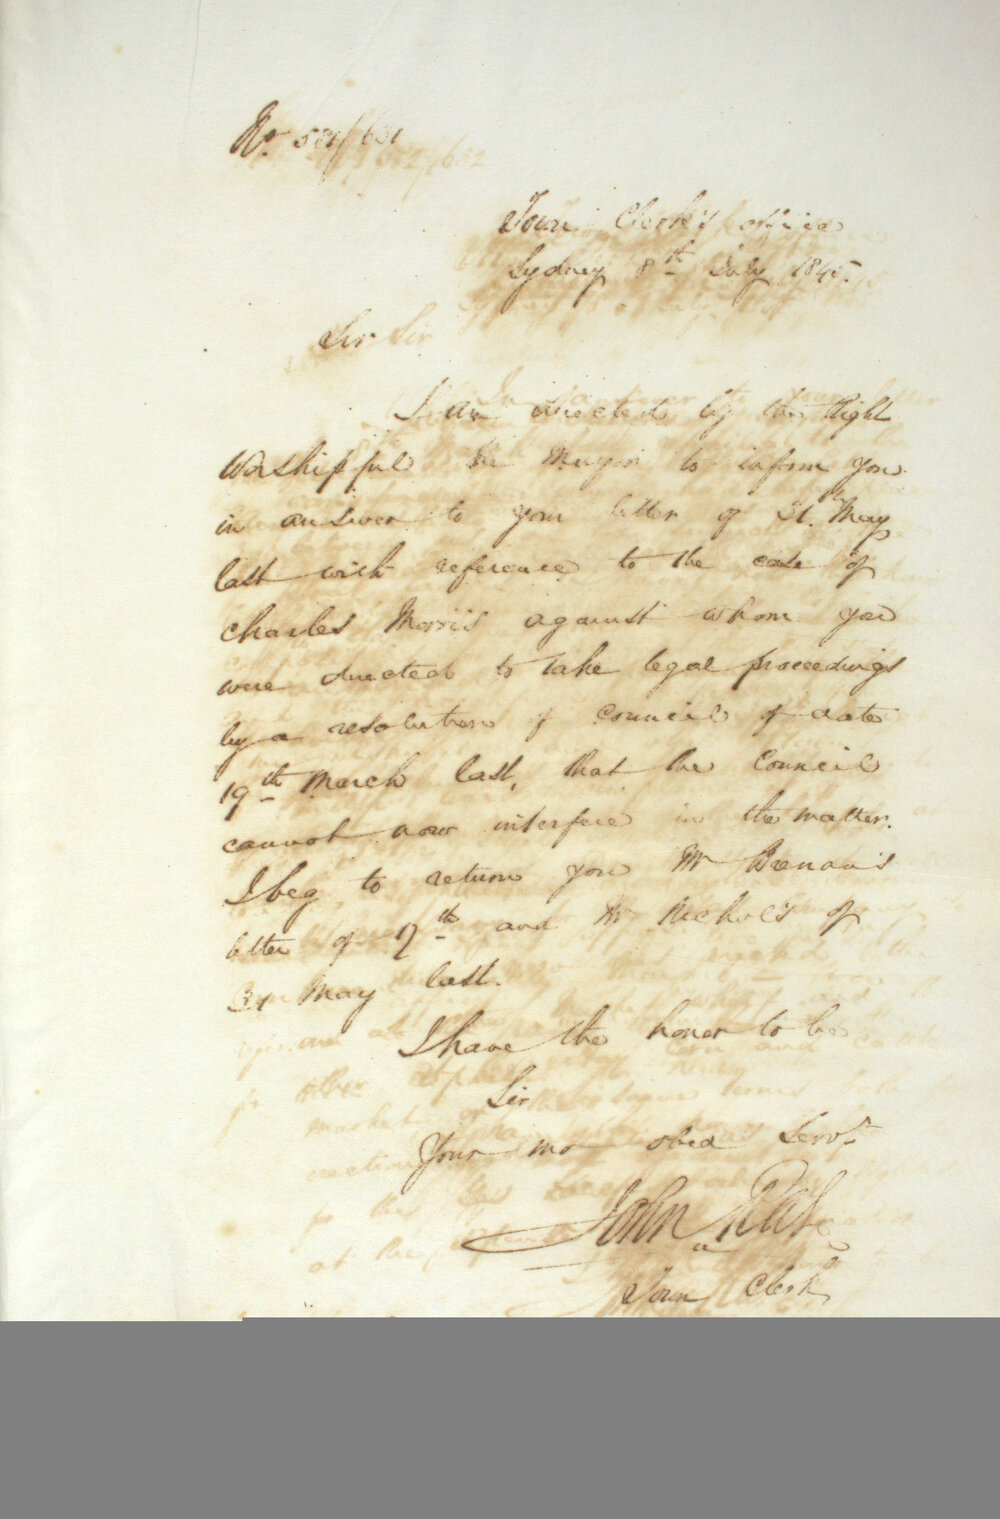 No. 581/631
Town Clerk's office
Sydney 8th July 1845.
Sir
I am directed by the Right
Worshipful the Mayor to inform you
in answer to your letter of 31st May
last with reference to the case of
Charles Morris against whom you
were directed to take legal proceedings
by a resolution of Council of date
19th March last, that the Council
cannot now interfere in the matter.
I beg to return you Mr Brenan's
letter of 9th and Mr Nichols's of
31 May last.
I have the honor to be
Sir
Your mo obed Servt
John Rae
Town Clerk